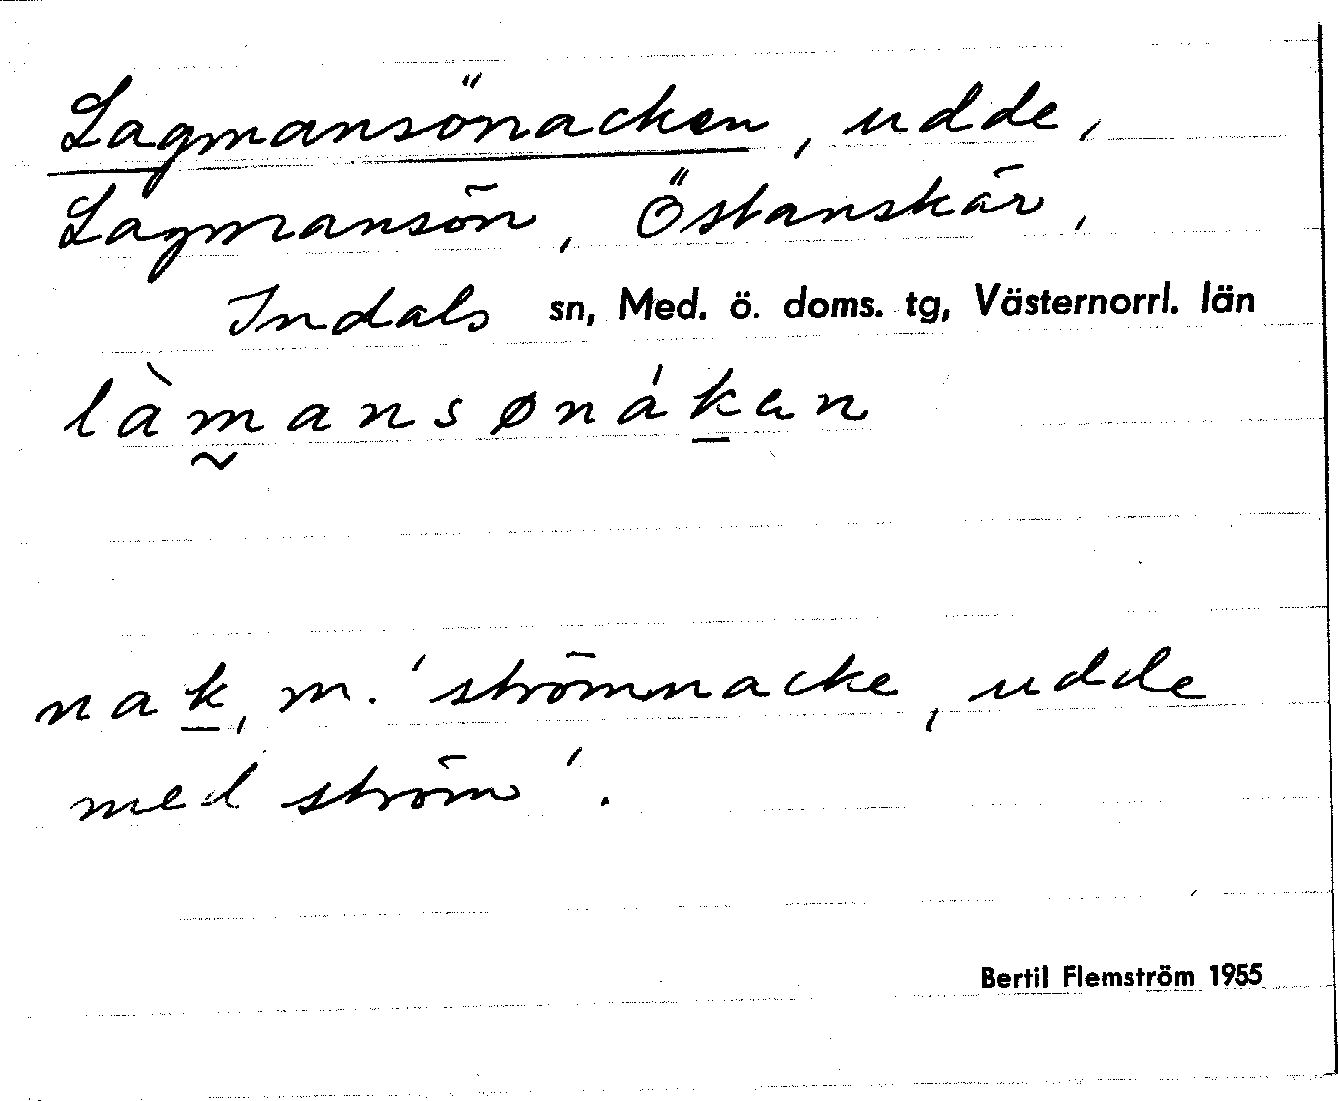 Lagmansönacken, udde,
Lagmansön, Östanskär,
Indals sn, Med. ö. doms. tg, Västernorrl. län
làm̰ansønáḵen
naḵ, m. 'strömnacke, udde
med ström'.
Bertil Flemström 1955